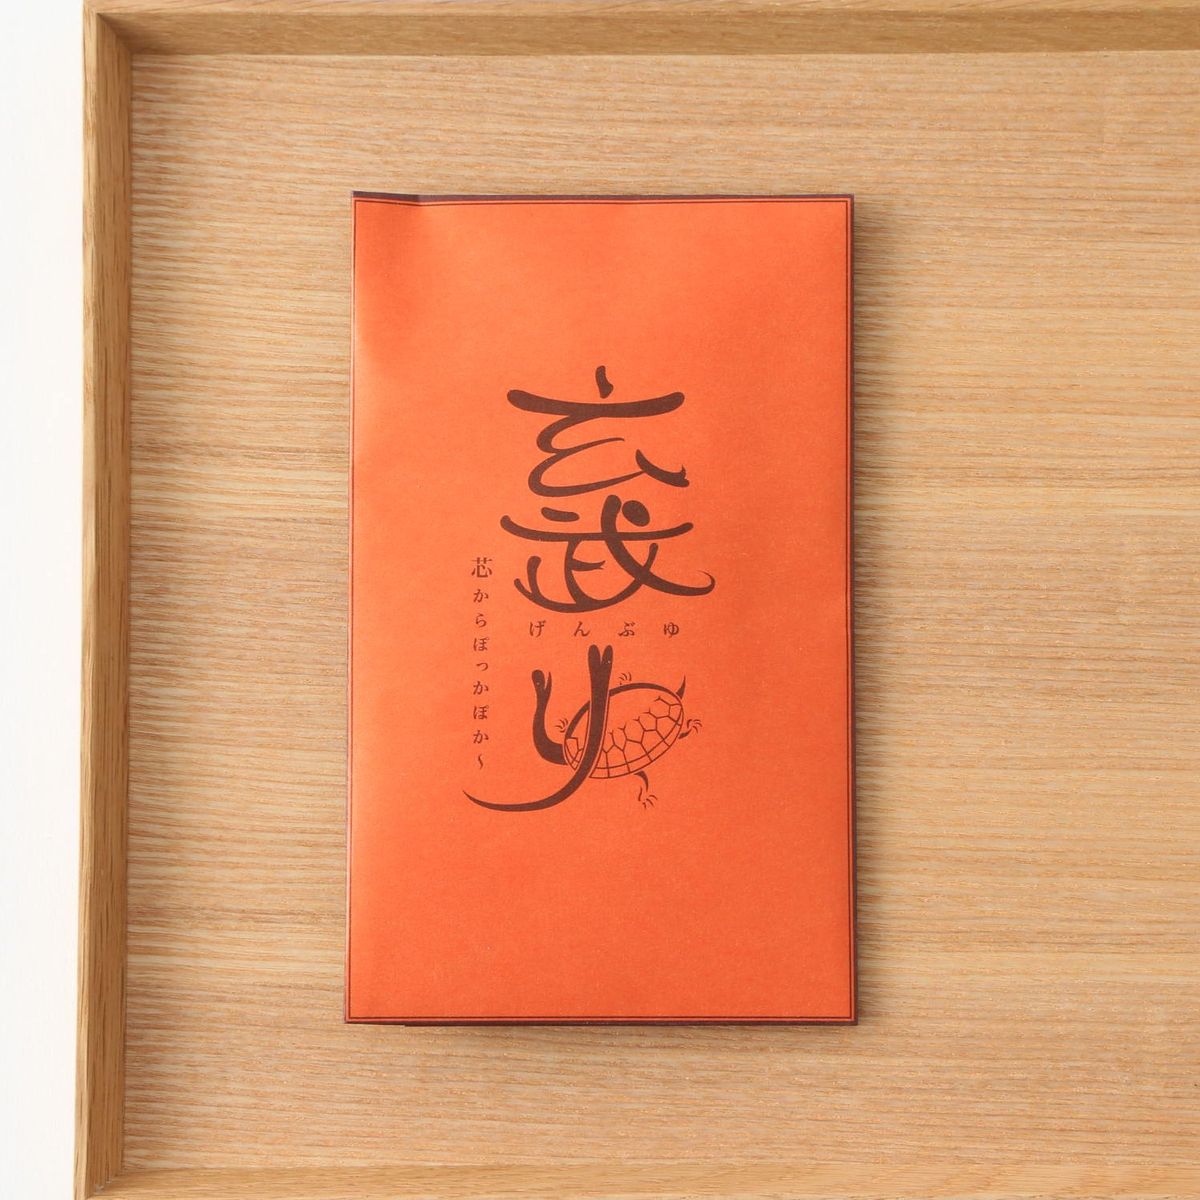 玄武ゆ
げんぶゆ
芯からぽっかぽか〜